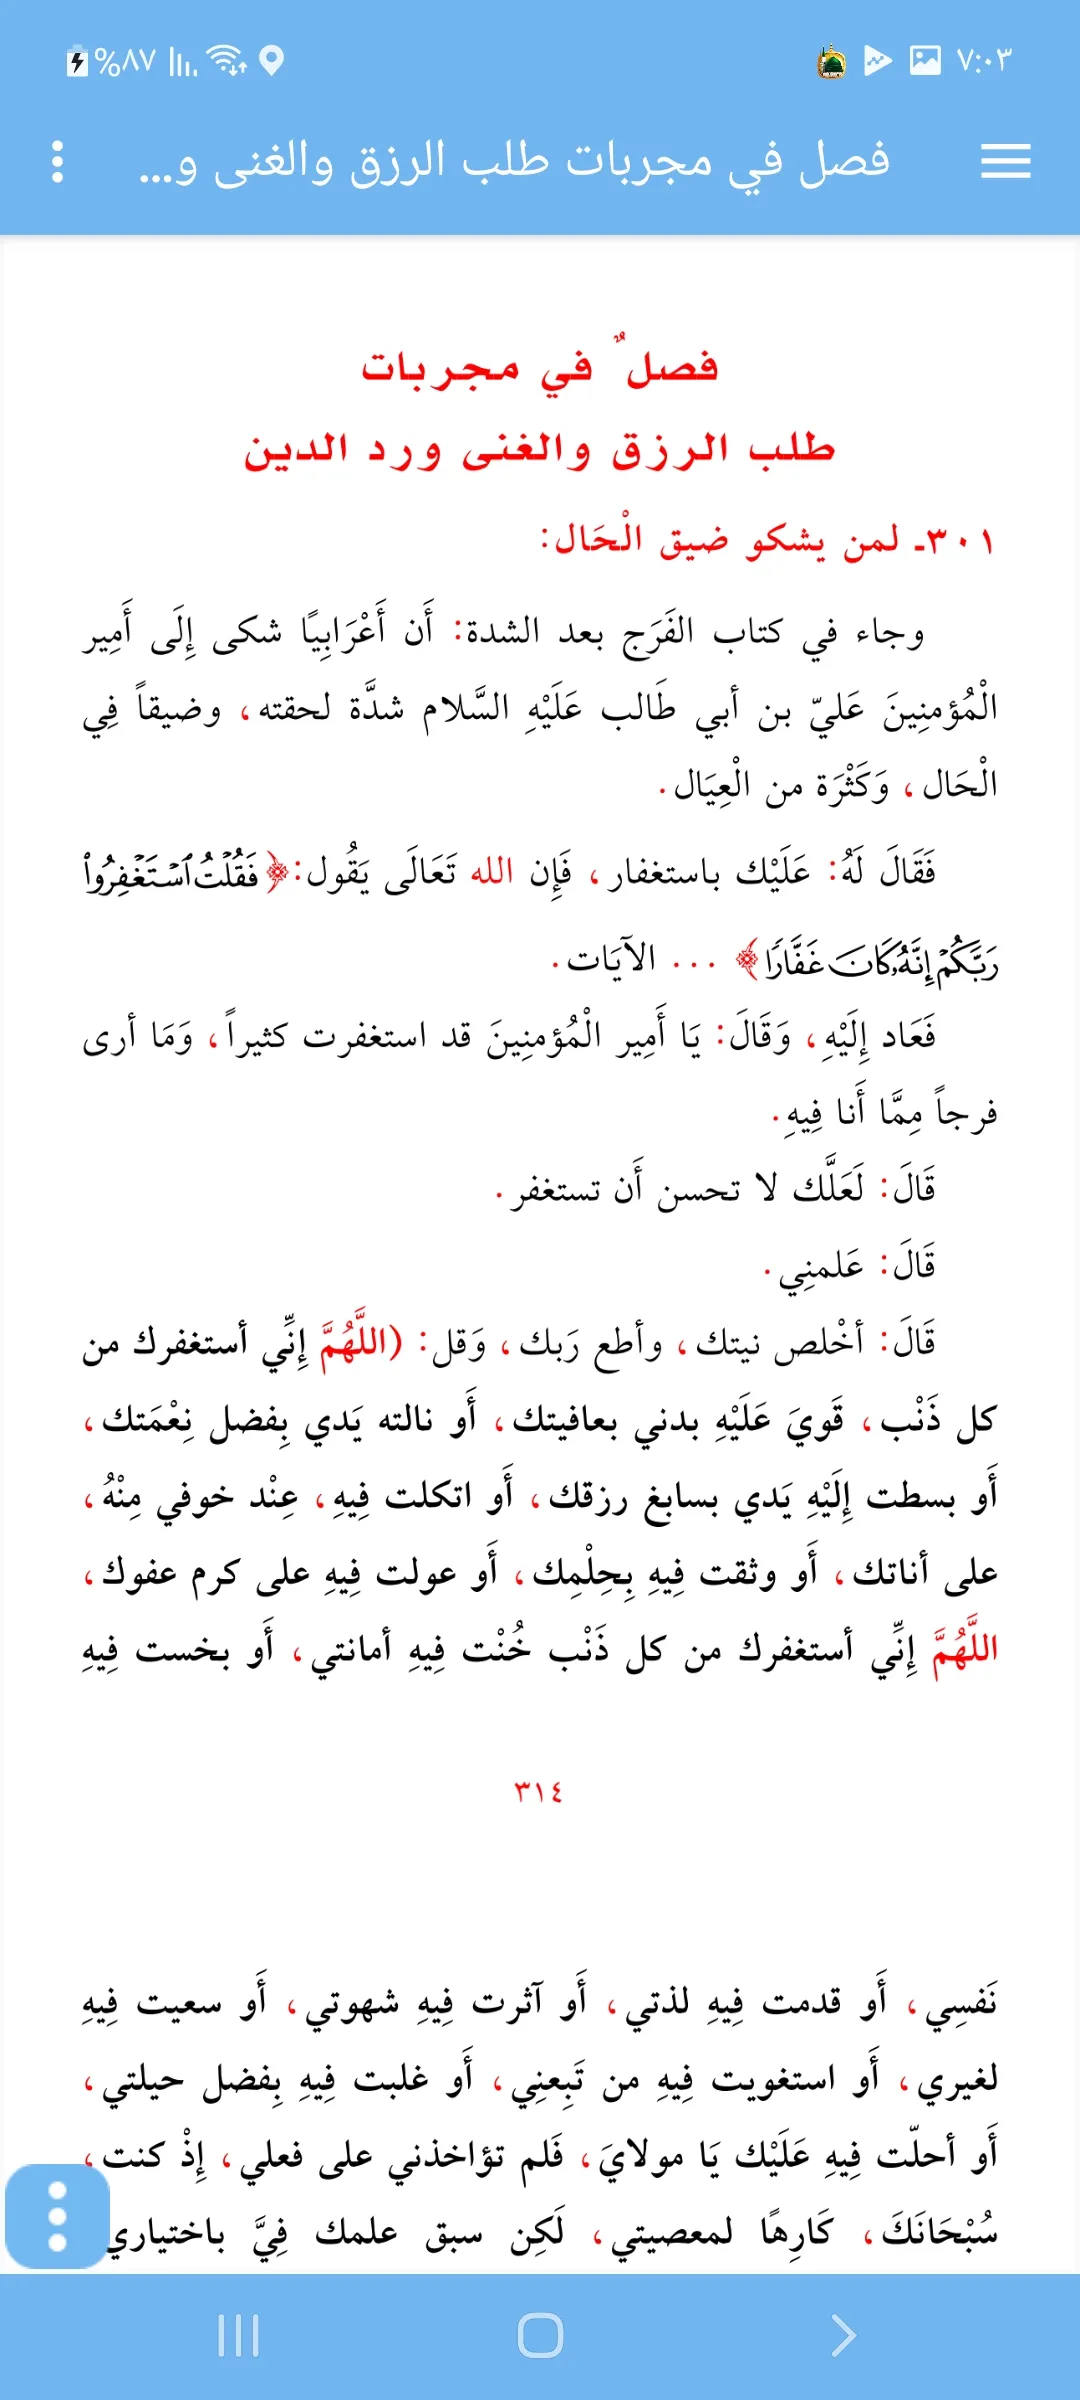 ٧:٠٣ %٨٧
فصل في مجربات طلب الرزق والغنى و...
فصلٌ في مجربات
طلب الرزق والغنى ورد الدين
٣٠١ـ لمن يشكو ضيق الْحَال:
وجاء في كتاب الفَرَج بعد الشدة: أَن أَعْرَابِيًا شكى إِلَى أَمِير
الْمُؤمنِينَ عَليّ بن أبي طَالب عَلَيْهِ السَّلام شدَّة لحقته، وضيقاً فِي
الْحَال، وَكَثْرَة من الْعِيَال.
فَقَالَ لَهُ: عَلَيْك باستغفار، فَإِن الله تَعَالَى يَقُول: ﴿فَقُلْتُ ٱسْتَغْفِرُوا۟
رَبَّكُمْ إِنَّهُۥ كَانَ غَفَّارًا﴾ ... الآيَات.
فَعَاد إِلَيْهِ، وَقَالَ: يَا أَمِير الْمُؤمنِينَ قد استغفرت كثيراً، وَمَا أرى
فرجاً مِمَّا أَنا فِيهِ.
قَالَ: لَعَلَّك لا تحسن أَن تستغفر.
قَالَ: عَلمنِي.
قَالَ: أخْلص نيتك، وأطع رَبك، وَقل: (اللَّهُمَّ إِنِّي أستغفرك من
كل ذَنْب، قَويَ عَلَيْهِ بدني بعافيتك، أَو نالته يَدي بِفضل نِعْمَتك،
أَو بسطت إِلَيْهِ يَدي بسابغ رزقك، أَو اتكلت فِيهِ، عِنْد خوفي مِنْهُ،
على أناتك، أَو وثقت فِيهِ بِحِلْمِك، أَو عولت فِيهِ على كرم عفوك،
اللَّهُمَّ إِنِّي أستغفرك من كل ذَنْب خُنْت فِيهِ أمانتي، أَو بخست فِيهِ
٣١٤
نَفسِي، أَو قدمت فِيهِ لذتي، أَو آثرت فِيهِ شهوتي، أَو سعيت فِيهِ
لغيري، أَو استغويت فِيهِ من تَبِعنِي، أَو غلبت فِيهِ بِفضل حيلتي،
أَو أحلّت فِيهِ عَلَيْك يَا مولايَ، فَلم تؤاخذني على فعلي، إِذْ كنت،
سُبْحَانَكَ، كَارِهًا لمعصيتي، لَكِن سبق علمك فِيَّ باختياري